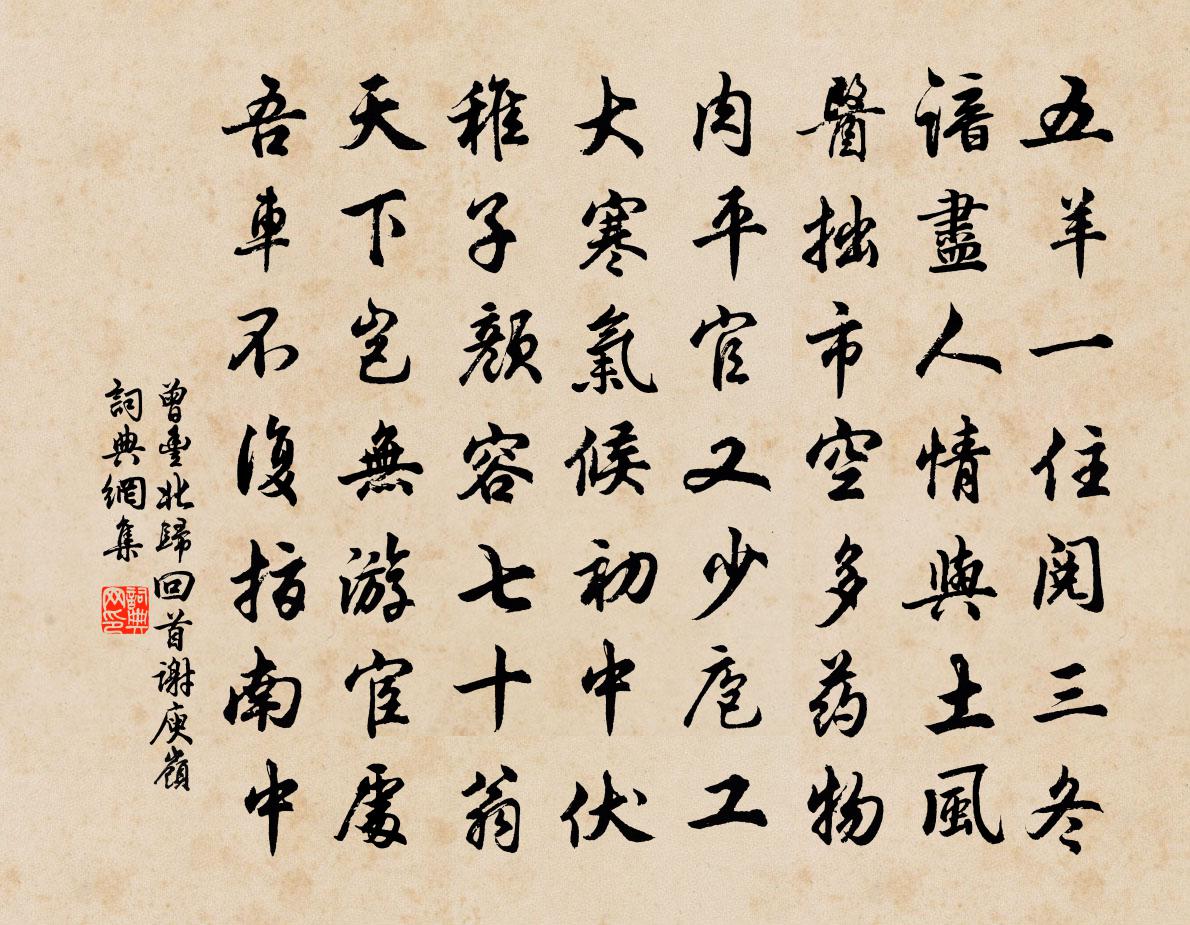 五羊一住閱三冬
諳盡人情與土風
醫拙市空多药物
肉平官又少庖工
大寒氣候初中伏
稚子顏容七十翁
天下豈無游宦處
吾車不復指南中
曾豊北歸回首谢庾嶺
詞典網集
詞典网印